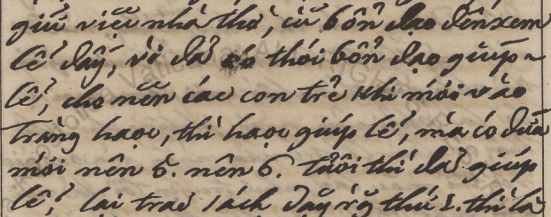 giữ việc nhà thờ, cũ bổn đạo đến xem
lễ đấy, vì đã có thói bổn đạo giúp
lễ, cho nên các con trẻ khi mới vào
tràng học, thì học giúp lễ, mà có đứa
mới nên 5. nên 6. tuổi thì đã giúp
lễ, lại trao sách dạy rằng thứ 2. thì là